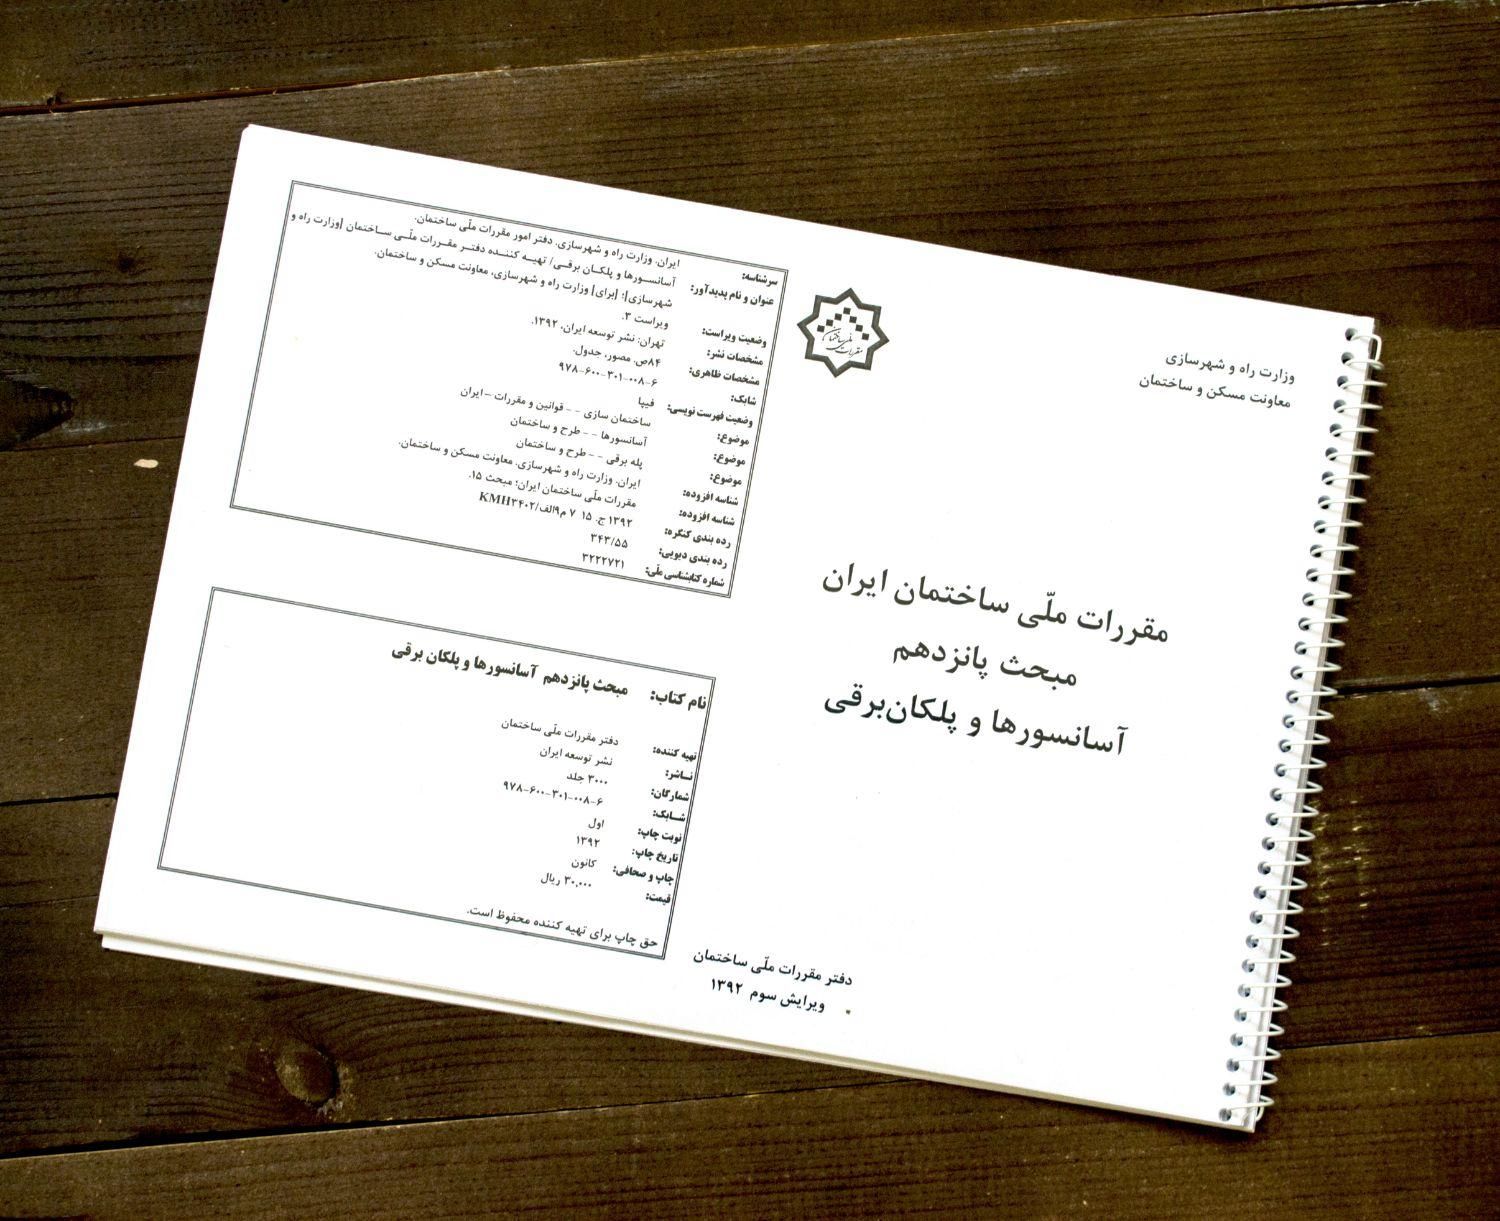 وزارت راه و شهرسازی
معاونت مسکن و ساختمان
مقررات ملی ساختمان
مقررات ملّی ساختمان ایران
مبحث پانزدهم
آسانسورها و پلکان‌برقی
دفتر مقررات ملّی ساختمان
ویرایش سوم ۱۳۹۲
سرشناسه: ایران. وزارت راه و شهرسازی. دفتر امور مقررات ملّی ساختمان.
عنوان و نام پدیدآور: آسانسورها و پلکان برقی/ تهیه کننده دفتر مقررات ملّی ساختمان [وزارت راه و
شهرسازی]؛ [برای] وزارت راه و شهرسازی، معاونت مسکن و ساختمان.
وضعیت ویراست: ویراست ۳.
مشخصات نشر: تهران: نشر توسعه ایران، ۱۳۹۲.
مشخصات ظاهری: ۸۴ص. مصور، جدول.
شابک: ۹۷۸-۶۰۰-۳۰۱-۰۰۸-۶
وضعیت فهرست نویسی: فیپا
موضوع: ساختمان سازی -- قوانین و مقررات - ایران
موضوع: آسانسورها -- طرح و ساختمان
موضوع: پله برقی -- طرح و ساختمان
شناسه افزوده: ایران. وزارت راه و شهرسازی. معاونت مسکن و ساختمان.
شناسه افزوده: مقررات ملّی ساختمان ایران؛ مبحث ۱۵.
رده بندی کنگره: ۱۳۹۲ ج. ۱۵ ۷ م۹الف/KMH۳۴۰۲
رده بندی دیویی: ۳۴۳/۵۵
شماره کتابشناسی ملّی: ۳۲۲۲۷۲۱
نام کتاب: مبحث پانزدهم آسانسورها و پلکان برقی
تهیه کننده: دفتر مقررات ملّی ساختمان
ناشر: نشر توسعه ایران
شمارگان: ۳۰۰۰ جلد
شابک: ۹۷۸-۶۰۰-۳۰۱-۰۰۸-۶
نوبت چاپ: اول
تاریخ چاپ: ۱۳۹۲
چاپ و صحافی: کانون
قیمت: ۳۰,۰۰۰ ریال
حق چاپ برای تهیه کننده محفوظ است.